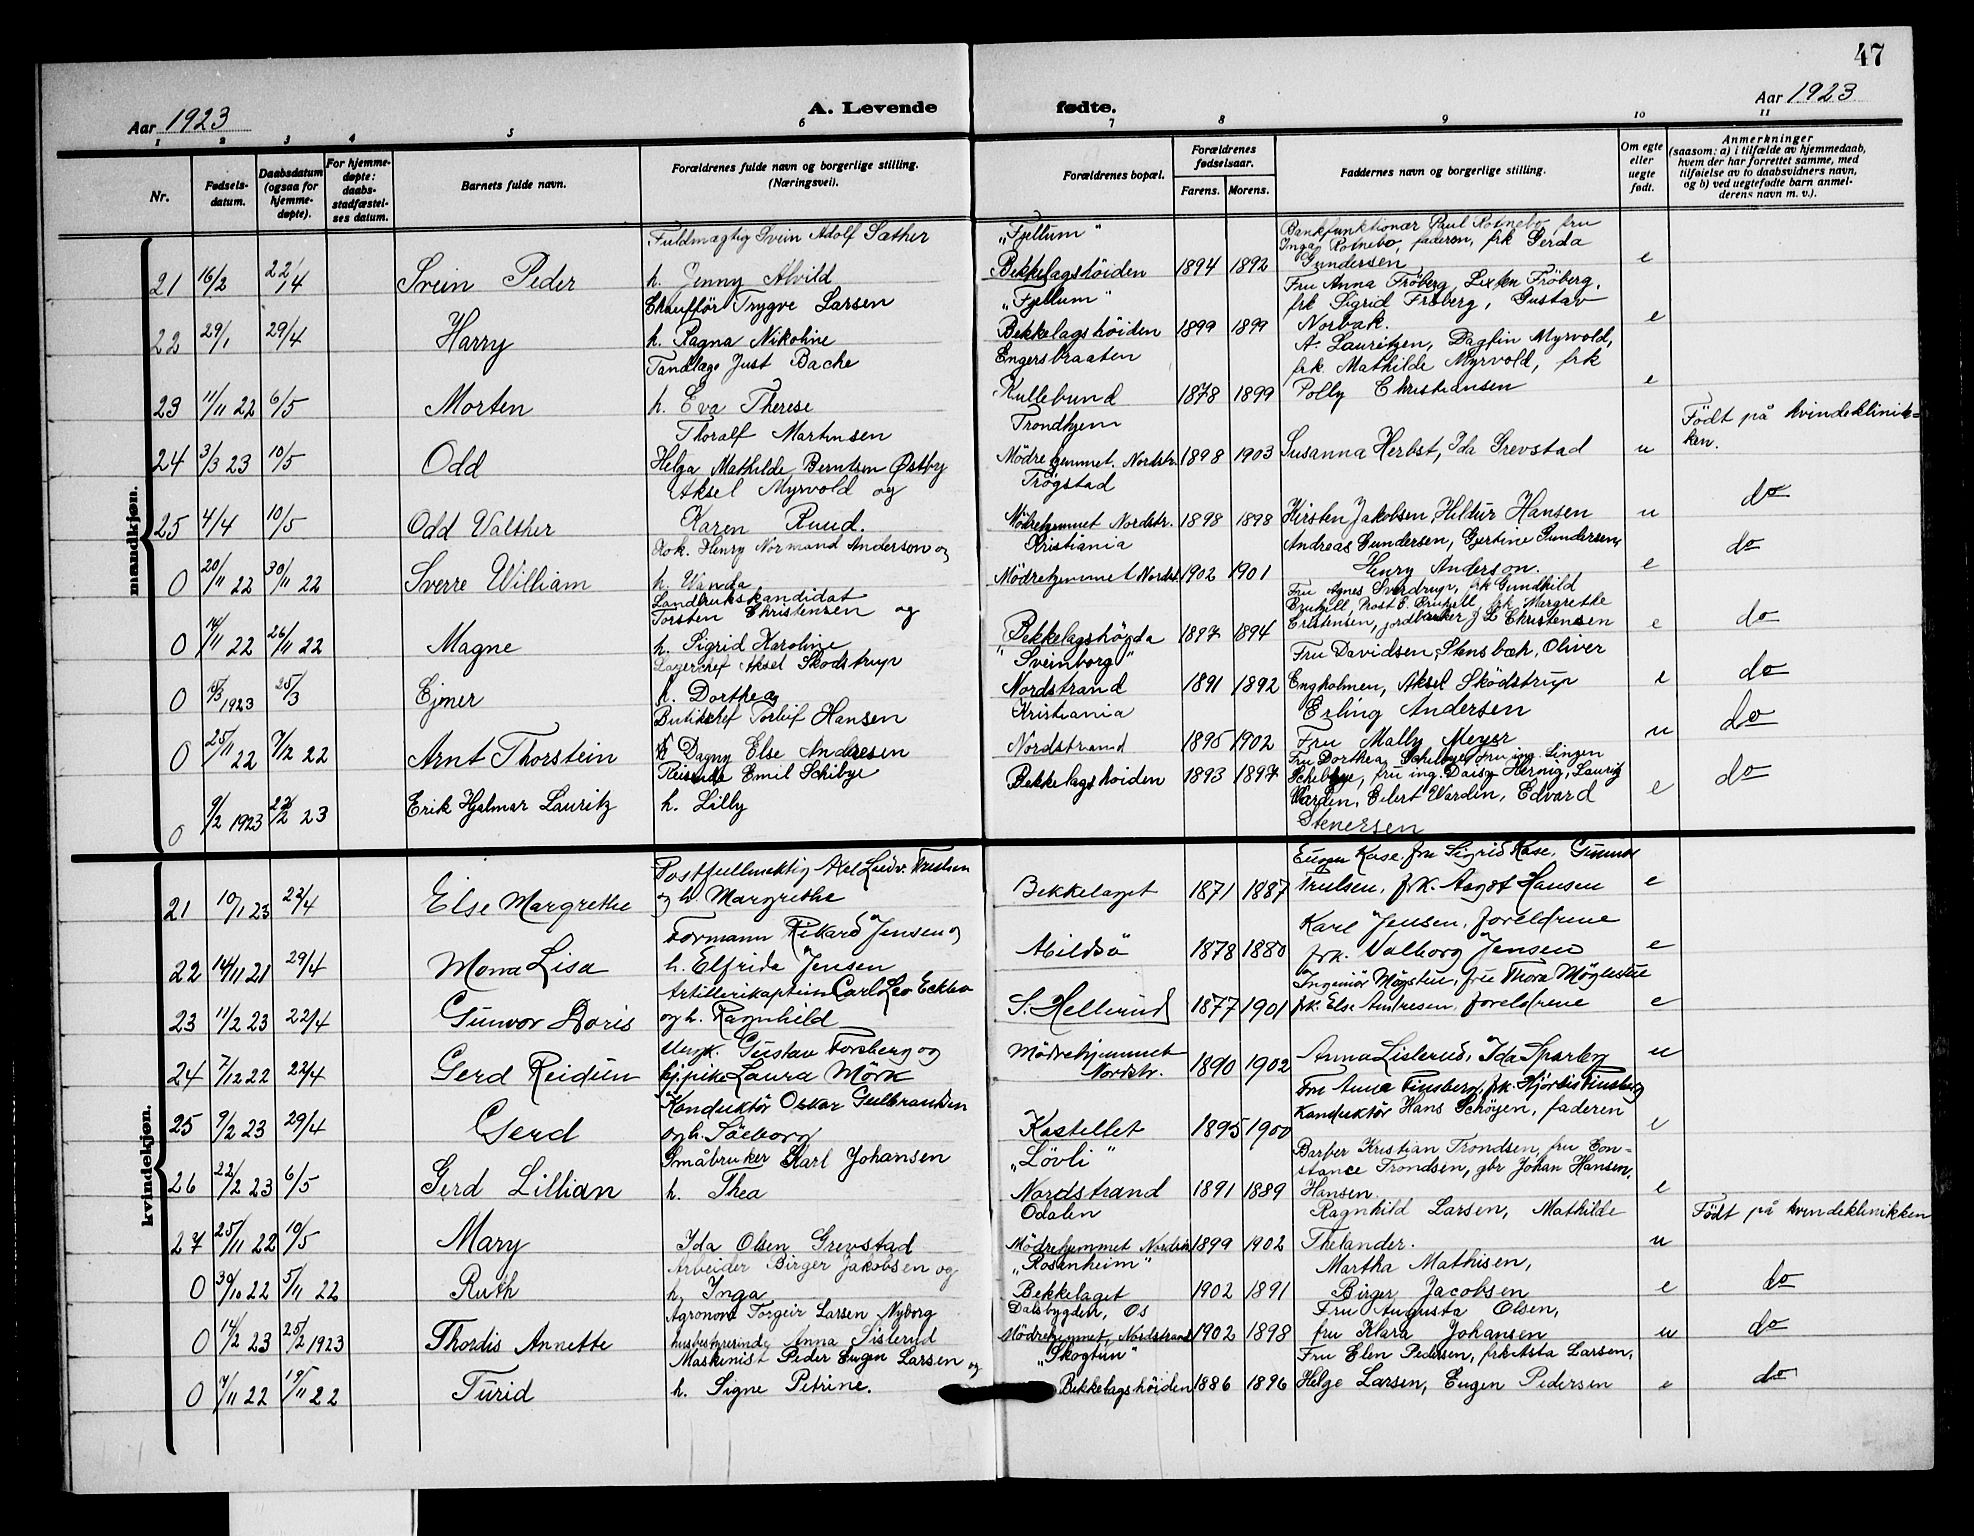 47
Aar 1923
A. Levende fødte.
Aar 1923
1 2 3 4 5 6 7 8 9 10 11
Nr.
Fødsels-
datum.
Daabsdatum
(ogsaa for
hjemme-
døpte).
For hjemme-
døpte:
daabs-
stadfæstel-
ses datum.
Barnets fulde navn.
Forældrenes fulde navn og borgerlige stilling.
(Næringsvei).
Forældrenes bopæl.
Forældrenes
fødselsaar.
Farens. Morens.
Faddernes navn og borgerlige stilling.
Om egte
eller
uegte
født.
Anmerkninger
(saasom: a) i tilfælde av hjemmedaab,
hvem der har forrettet samme, med
tilføielse av to daabsvidners navn,
og b) ved uegtefødte barn anmel-
derens navn m. v.).
mandkjøn.
Fuldmægtig Svein Adolf Sæther "Fjellum" Bankfunktionær Paul Rotnebo, fru
Inga Rotnebo, faderen, frk Gerda
21 16/2 22/4 Svein Peder h. Jenny Alvild Bekkelagshöiden 1894 1892 Gundersen e
Chaufför Trygve Larsen "Fjellum" Fru Anna Fröberg, Fröberg,
frk Sigrid Fröberg, Gustav
22 29/1 29/4 Harry h. Ragna Nikoline Bekkelagshöiden 1899 1899 Norbak. e
Tandlæge Just Bache Engersbraaten A. Lauritzen, Dagfin Myrvold,
frk. Mathilde Myrvold, frk
23 11/11 22 6/5 Morten h. Eva Therese Kullebund 1878 1899 Polly Christiansen e
Thoralf Martinsen Trondhjem Födt på kvindeklinik-
ken.
24 3/3 23 10/5 Odd Helga Mathilde Berntsen Østby Mödrehjemmet. Nordstr. 1898 1903 Susanna Herbst, Ida Grevstad u
Aksel Myrvold og Trögstad
25 4/4 10/5 Odd Walther Karen Ruud. Mödrehjemmet Nordstr. 1898 1898 Kirsten Jakobsen, Heldur Hansen u do
Kok. Henry Normand Anderson og Kristiania Andreas Gundersen, Gjertine Gundersen,
0 20/11 22 30/11 22 Sverre William h. Wanda Mödrehjemmet Nordst. 1902 1901 Henry Anderson. e do
Landbrukskandidat Fru Agnes Sverdrup, frk Gundhild
Torsten Christensen og Prost E. frk. Margrethe
0 14/11 22 26/11 22 Magne h. Sigrid Karoline Bekkelagshögda 1897 1894 Cristensen, jordbruker J L Christensen e do
Lagerchef Aksel Skodstrup "Sveinborg" Fru Davidsen, Stensbæk, Oliver
0 15/3 1923 25/3 Ejner h. Dorthea Nordstrand 1891 1892 Engholmen, Aksel Sködstrup e do
Butikchef Torleif Hansen Kristiania Erling Andersen
0 25/11 22 7/2 22 Arnt Thorstein Dagny Else Andresen Nordstrand 1895 1902 Fru Mally Meyer u do
Reisende Emil Schibye Bekkelagshöiden 1893 1897 Fru Dorthea Schibbye, fru ing. Lingen
Schibbye, fru ing. Daisy Hernig, Lauritz
0 9/2 1923 22/2 23 Erik Hjalmar Lauritz h. Lilly Warden, Eilert Wardin, Edvard e do
Stenersen
kvindekjøn.
Postfullmektig Axel Ludv. Trulsen Kase, fru Sigrid Kase, Gunnor
21 10/1 23 22/4 Else Margrethe og h. Margrethe Bekkelaget 1871 1887 Trulsen, frk. Aagot Hansen e
Formann Rikard Jensen og Karl Jensen, foreldrene
22 14/11 21 29/4 Mona Lisa h. Elfrida Jensen Abildsö 1878 1880 frk. Valborg Jensen e
Artillerikaptein Carl Leo Eckhoo Ingeniör Mögstue, fru Thora Möglestue
23 11/2 23 22/4 Gunvor Doris og h. Ragnhild S. Hellerud 1877 1901 frk. Else Andresen, foreldrene e
Ungk. Gustav Forsberg og Mödrehjemmet
24 7/12 22 22/4 Gerd Reidun Laura Mörk Nordstr. 1890 1902 Anna Listerud, Ida Sparby u
Konduktör Oskar Gulbrandsen Fru Anna Finsberg, frk. Hjördis Finsberg
25 9/2 23 29/4 Gerd og h. Söeborg Kastellet 1895 1900 Konduktör Hans Schöyen, faderen e
Småbruker Karl Johansen "Lövli" Barber Kristian Trondsen, fru Con-
stance Trondsen, gbr Johan Hansen,
26 22/2 23 6/5 Gerd Lillian h. Thea Nordstrand 1891 1889 Hansen e
Odalen Ragnhild Larsen, Mathilde Födt på kvindeklinikken
27 25/11 22 10/5 Mary Ida Olsen Grevstad Mödrehjemmet Nordstr. 1899 1902 Thelander. u
Arbeider Birger Jakobsen og "Rosenheim" Martha Mathisen,
0 30/10 22 5/11 22 Ruth h. Inga Bekkelaget 1902 1891 Birger Jacobsen e do
Agronom Torgeir Larsen Nyborg Dalsbygden, Os Fru Augusta Olsen,
0 14/2 23 25/2 1923 Thordis Annette husbestyrerinde Anna Sislerud Mödrehjemmet, Nordstrand 1902 1898 fru Klara Johansen u do
Maskinist Peder Eugen Larsen og "Skogtun" Fru Elen Pedersen, frk Asta Larsen,
0 7/11 22 19/11 22 Turid h. Signe Petrine. Bekkelagshöiden 1886 1896 Helge Larsen, Eugen Pedersen e do